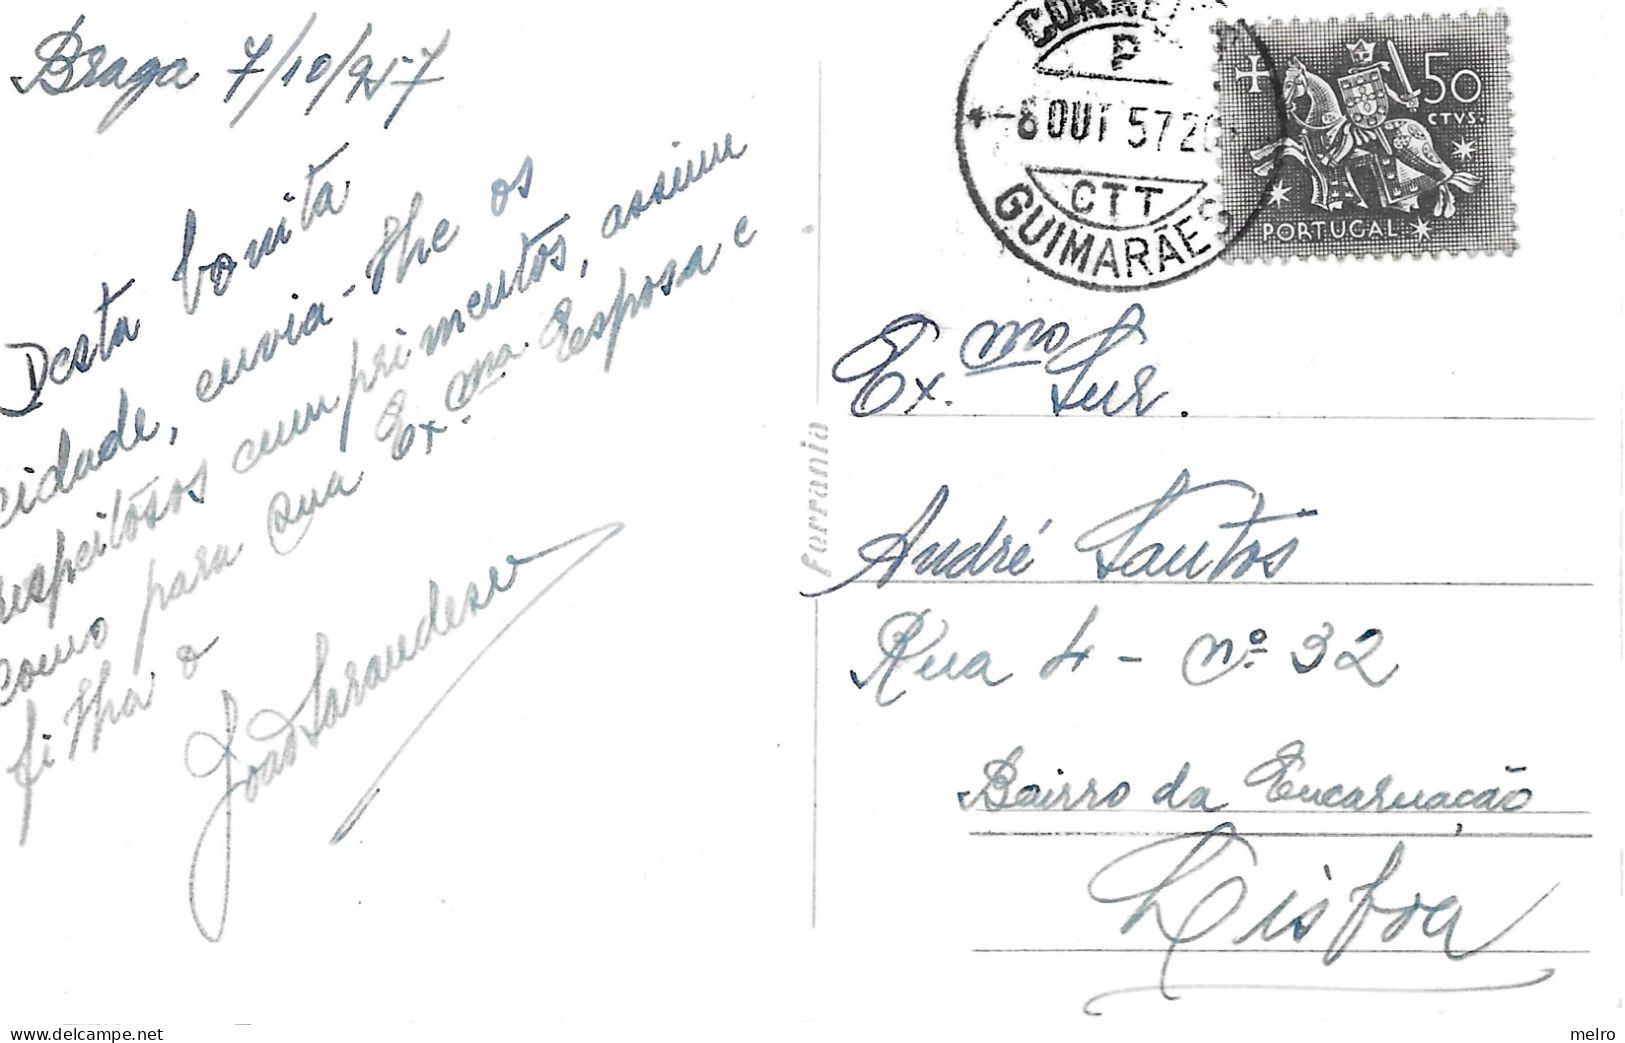 Braga 7/10/957
Desta bonita
cidade, envia-lhe os
respeitosos cumprimentos, assim
como para sua Ex.ma Esposa e
filha o
João
CORREI
P
-8 OUT 57 20
CTT
GUIMARÃES
50
CTVS.
PORTUGAL
Ex.mo Snr.
André Santos
Rua 4 - nº 32
Bairro da Encarnação
Lisboa
ferrania
melro